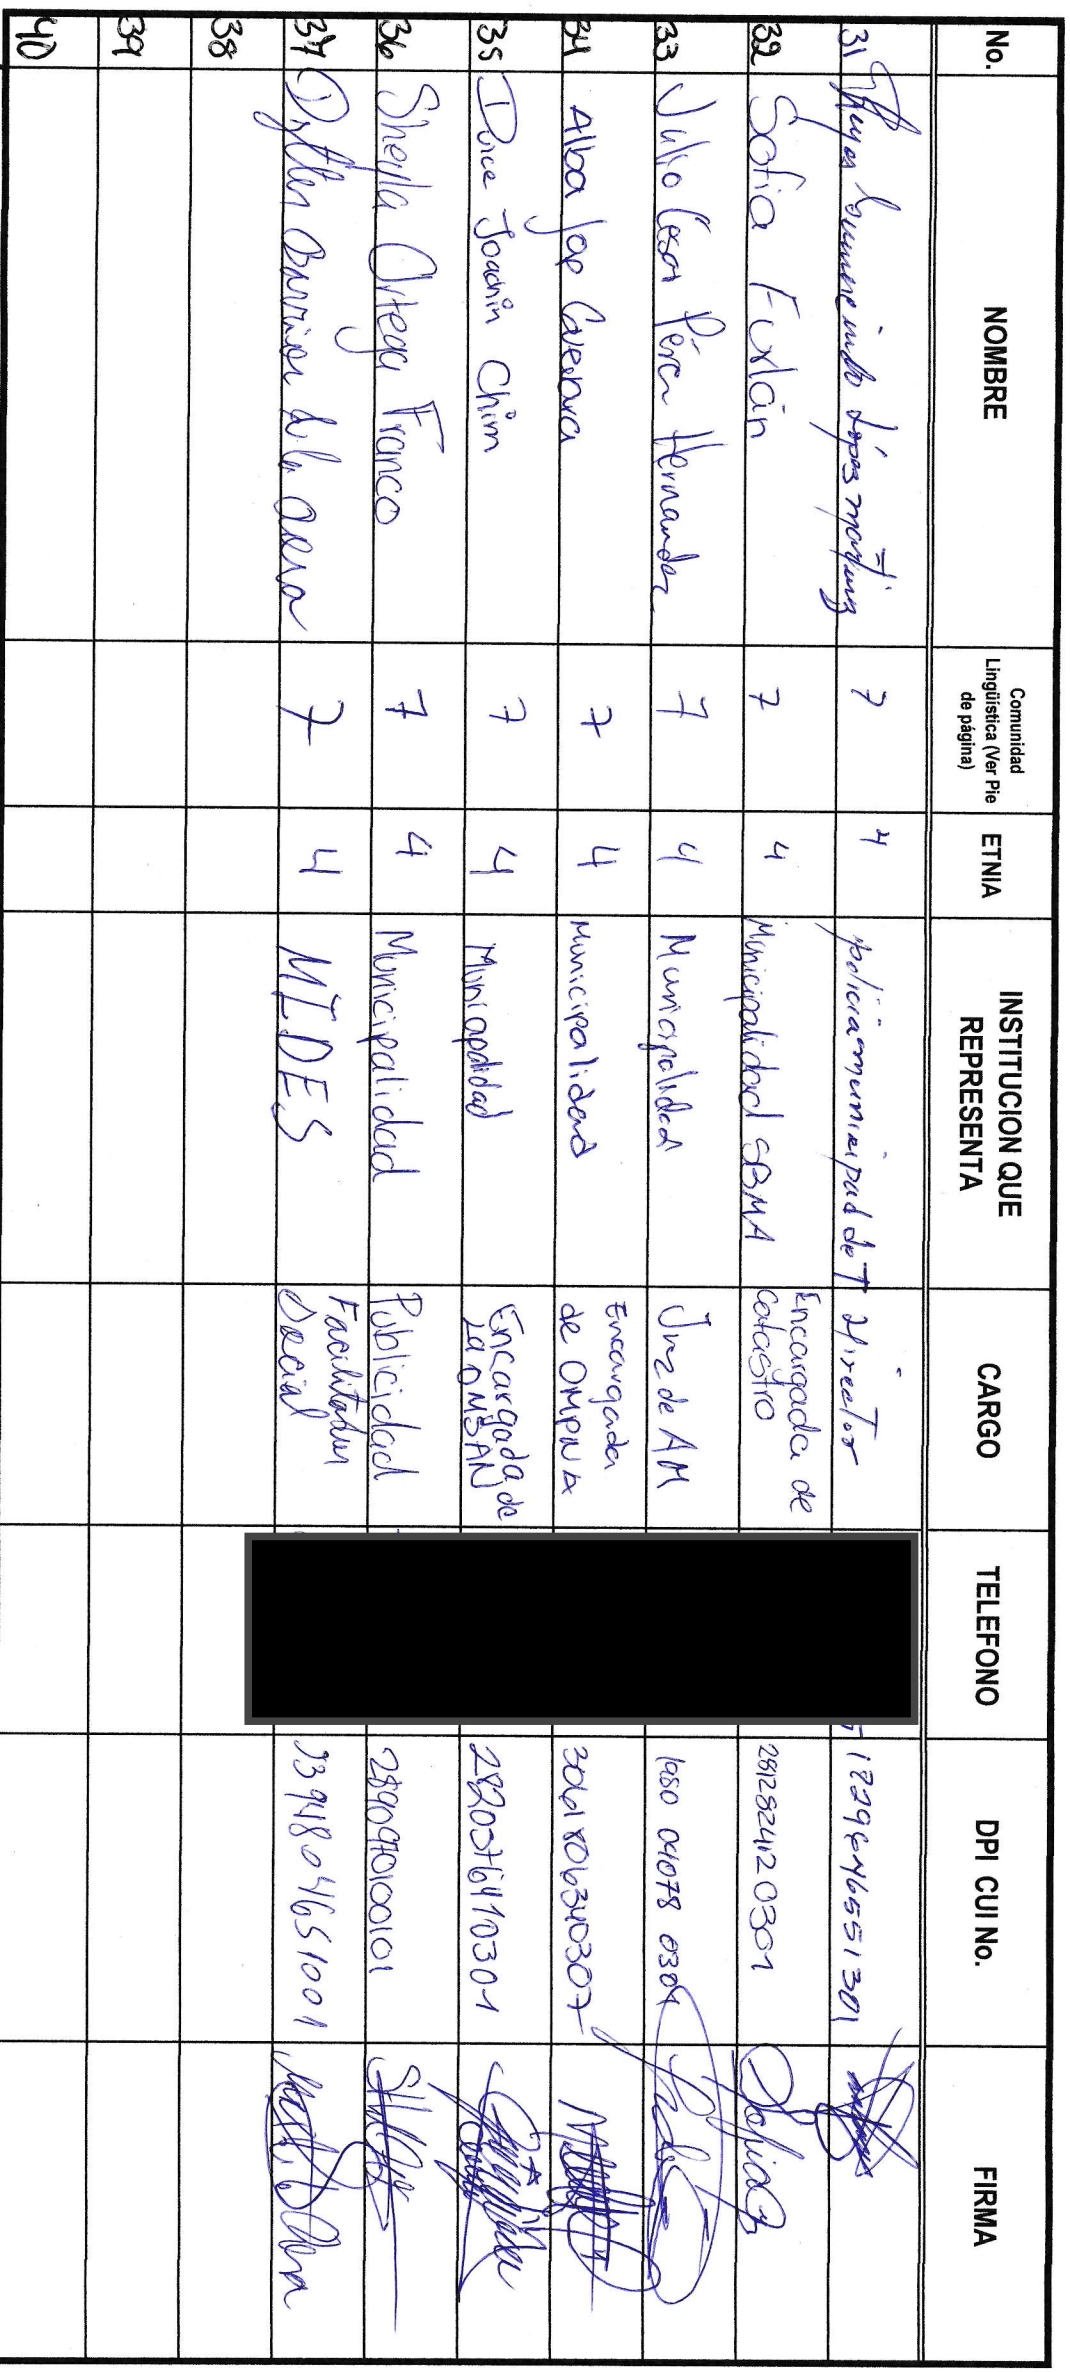 No. NOMBRE Comunidad Lingüistica (Ver Pie de página) ETNIA INSTITUCION QUE REPRESENTA CARGO TELEFONO DPI CUI No. FIRMA
31 López 7 4 policia municipal de T director
32 Sofia Furlán 7 4 Municipalidad SBMA Encargada de catastro 2812824120301
33 Julio Cesar Pérez Hernandez 7 4 Municipalidad Juez de AM 1980 04078 0301
34 Alba Jop Guevara 7 4 Municipalidad Encargada de OMPNA 3061806340307
35 Dulce Joachin Chim 7 4 Municipalidad Encargada de la OMSAN 2820376410301
36 Sheyla Ortega Franco 7 4 Municipalidad Publicidad 2890970100101
37 Barrios de la 7 4 MIDES Facilitador Social
38
39
40